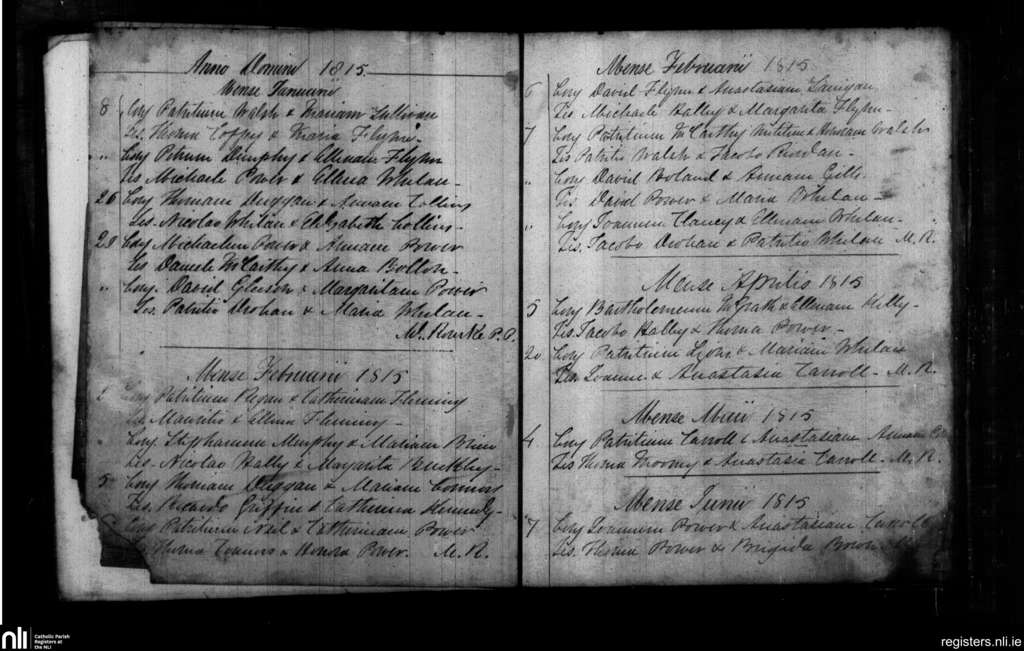 Anno Domini 1815
Mense Januarii
8 Conj Patritium Walsh & Mariam Sullivan
Tes. Thoma Coffey & Maria Flynn
" Conj Petrum Dunphy & Ellenam Flynn
Tes Michaele Power & Ellena Whelan
26 Conj Thomam Duggan & Annam Collins
Tes. Nicolao Whelan & Elizabeth Collins
28 Conj Michaelem Power & Annam Power
Tes Daniele McCarthy & Anna Bolton
" Conj. David Gleeson & Margaritam Power
Tes. Patritio Drohan & Maria Whelan
M. Rourke P.P.
Mense Februarii 1815
2 Conj Patritium Regan & Catherinam Fleming
Tes Mauritio & Ellena Fleming
Conj. Stephanum Murphy & Mariam Brien
Tes. Nicolao Hally & Margarita Buckley
5 Conj Thomam Duggan & Mariam Connors
Tes. Ricardo Griffin & Catherina Kennedy
6 Conj Patritium Neil & Catherinam Power
Thoma Connors & Honora Power. M. R.
Mense Februarii 1815
6 Conj David Flynn & Anastasiam
Tes Michaele Halley & Margarita Flynn
7 Conj Patritium McCarthy & Walsh
Tes Patritio Walsh & Jacobo Riordan
" Conj David Boland & Annam Gill
Tes. David Power & Maria Whelan
" Conj Joannem Clancy & Ellenam Whelan
Tes. Jacobo Drohan & Patritio Whelan M. R.
Mense Aprilis 1815
5 Conj Bartholomeum McGrath & Ellenam Kelly
Tes. Jacobo Halley & Thoma Power
20 Conj Patritium Lyons & Mariam Whelan
Tes Joanne & Anastasia Carroll M. R.
Mense Maii 1815
4 Conj Patritium Carroll & Anastasiam
Tes Thoma Mooney & Anastasia Carroll M. R.
Mense Junii 1815
7 Conj Joannem Power & Anastasiam Carroll
Tes. Thoma Power & Brigida Brown
nli Catholic Parish
Registers at
the NLI
registers.nli.ie